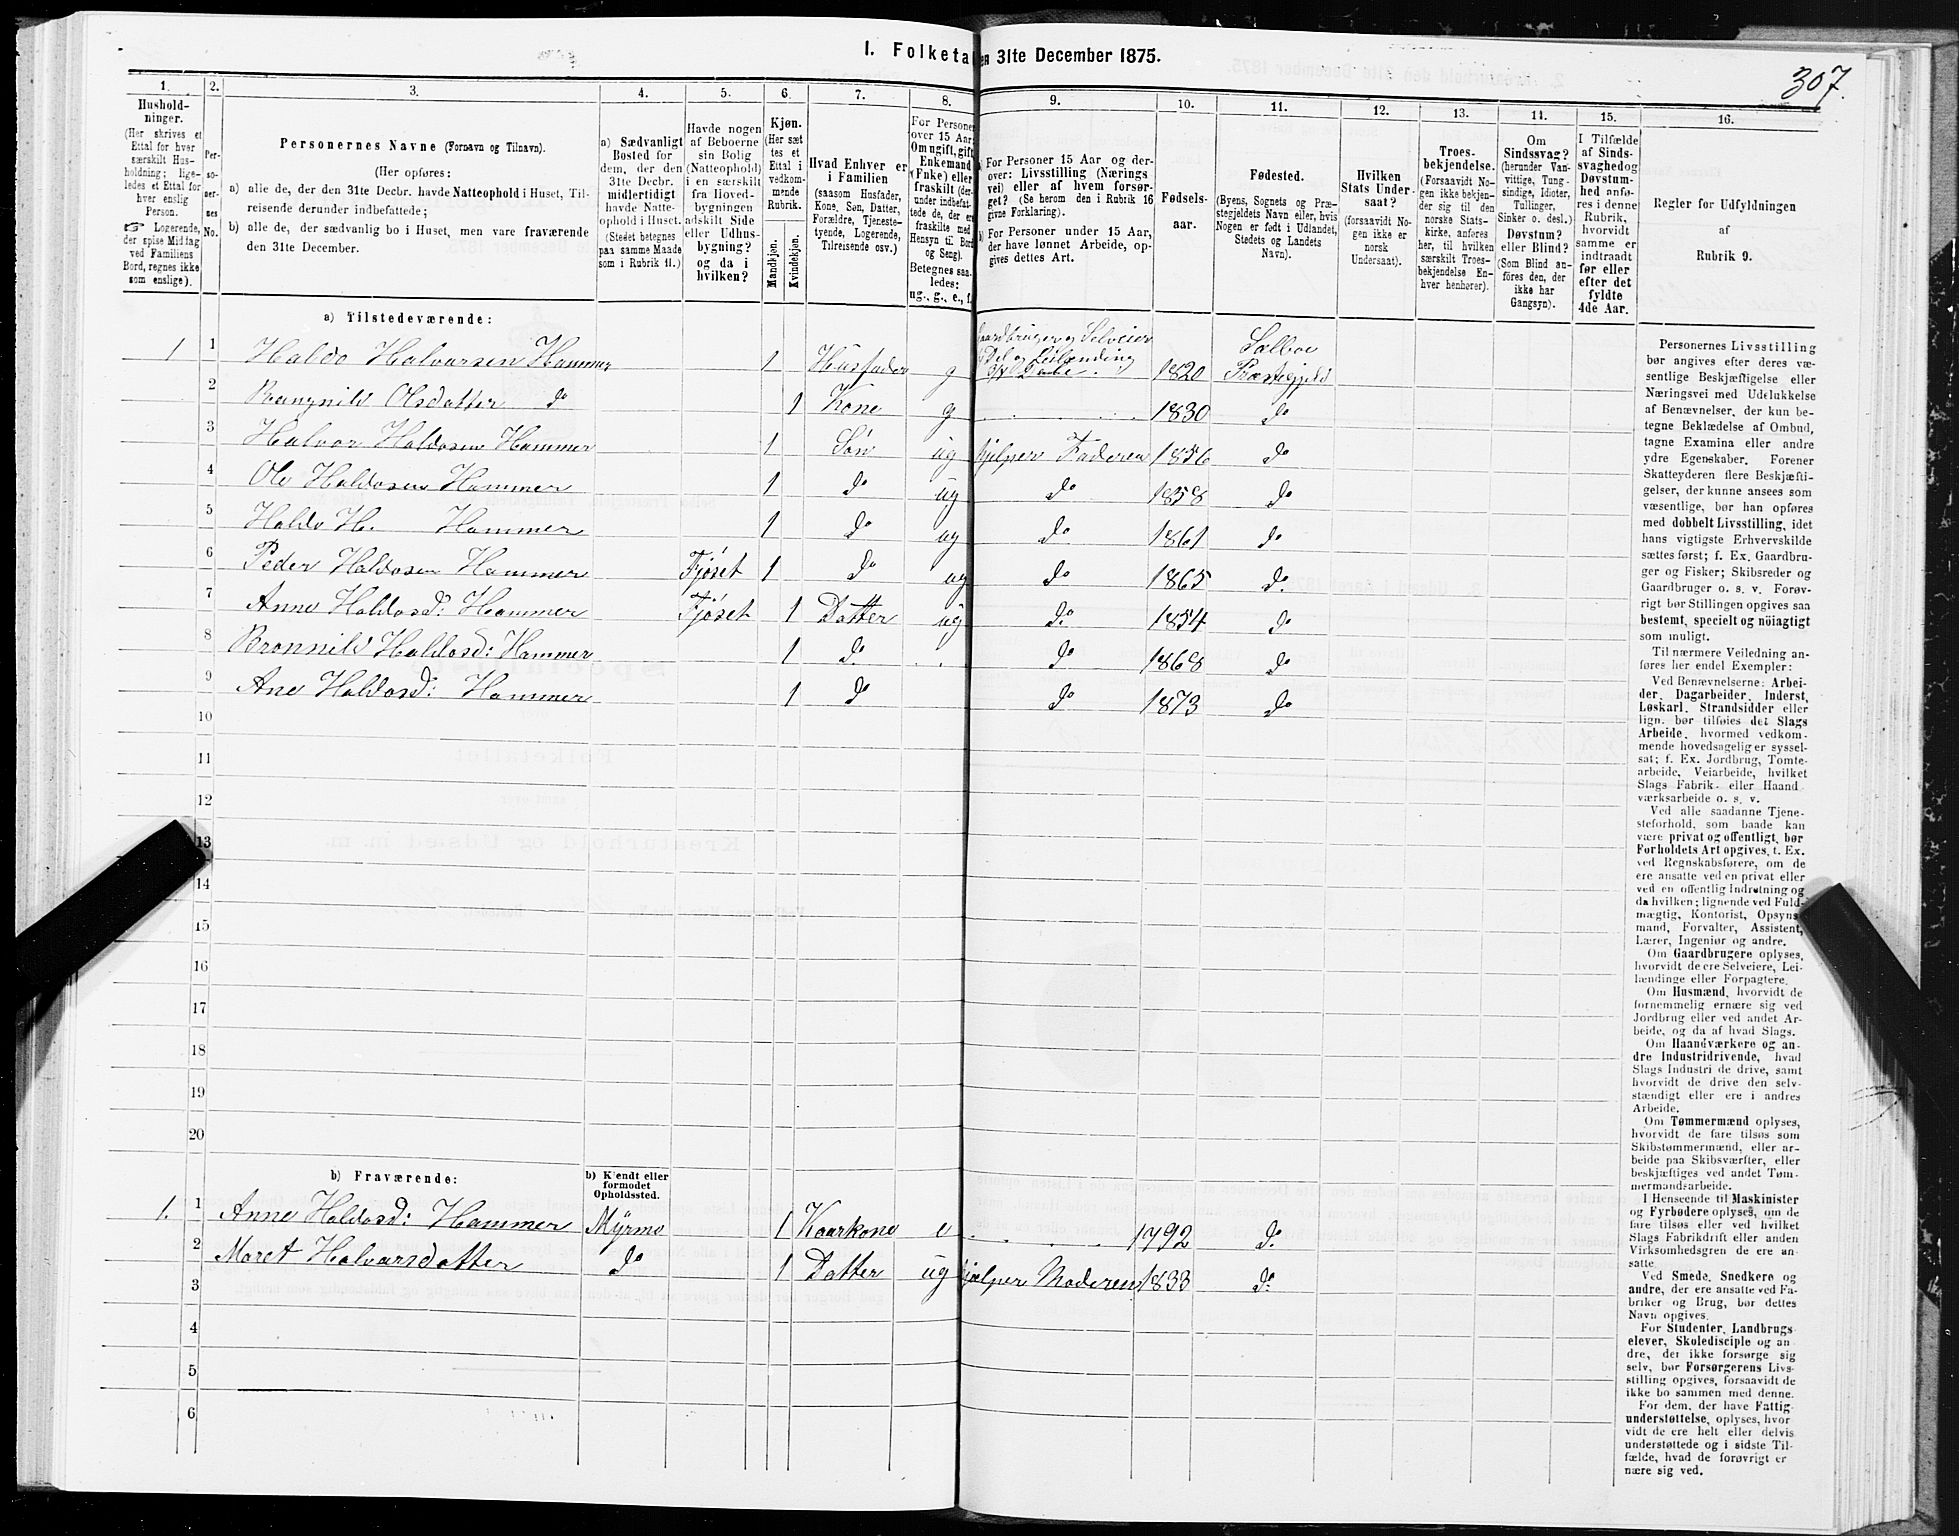 I. Folketal den 31te December 1875.
307.
1. 2. 3. 4. 5. 6. 7. 8. 9. 10. 11. 12. 13. 14. 15. 16.
Hushold-
ninger.
(Her skrives et
Ettal for hver
særskilt Hus-
holdning; lige-
ledes et Ettal for
hver enslig
Person.
☞ Logerende,
der spise Middag
ved Familiens
Bord, regnes ikke
som enslige).
Per-
so-
ner-
nes
No.
Personernes Navne (Fornavn og Tilnavn).
(Her opføres:
a) alle de, der den 31te Decbr. havde Natteophold i Huset, Til-
reisende derunder indbefattede;
b) alle de, der sædvanlig bo i Huset, men vare fraværende
den 31te December.
a) Sædvanligt
Bosted for
dem, der den
31te Decbr.
midlertidigt
havde Natte-
ophold i Huset.
(Stedet betegnes
paa samme Maade
som i Rubrik 11.)
Havde nogen
af Beboerne
sin Bolig
(Natteophold)
i en særskilt
fra Hoved-
bygningen
adskilt Side
eller Udhus-
bygning?
og da i
hvilken?
Kjøn.
(Her sæt
tes et
Ettal i
vedkom-
mende
Rubrik.
Mandkjøn.
Kvindekjøn.
Hvad Enhver er
i Familien
(saasom Husfader,
Kone, Søn, Datter,
Forældre, Tjeneste-
tyende, Logerende,
Tilreisende osv.)
For Personer
over 15 Aar:
Om ugift, gift,
Enkemand
(Enke) eller
fraskilt (der-
under indbefat-
tede de, der ere
fraskilte med
Hensyn til Bord
og Seng).
Betegnes saa-
ledes:
ug., g., e., f.
a) For Personer 15 Aar og der-
over: Livsstilling (Nærings
vei) eller af hvem forsør-
get? (Se herom den i Rubrik 16
givne Forklaring).
b) For Personer under 15 Aar,
der have lønnet Arbeide, op-
gives dettes Art.
Fødsels-
aar.
Fødested.
(Byens, Sognets og Præ-
stegjeldets Navn eller, hvis
Nogen er født i Udlandet,
Stedets og Landets
Navn).
Hvilken
Stats Under-
saat?
(forsaavidt No-
gen ikke er
norsk
Undersaat).
Troes-
bekjendelse.
(Forsaavidt No-
gen ikke bekjen-
der sig til den
norske Stats-
kirke, anføres
her, til hvilken
særskilt Troes-
bekjendelse En-
hver henhører).
Om
Sindssvag?
(herunder Van-
vittige, Tung-
sindige, Idioter,
Tullinger,
Sinker o. desl.)
Døvstum?
eller Blind?
(Som Blind an-
føres den, der
ikke har
Gangsyn).
I Tilfælde
af Sinds-
svaghed og
Døvstum-
hed anfø-
res i denne
Rubrik,
hvorvidt
samme er
indtraadt
før eller
efter det
fyldte
4de Aar.
Regler for Udfyldningen
af
Rubrik 9.
a) Tilstedeværende:
1 1 Haldo Halvarsen Hammer 1 Husfader g Gaardbruger og Selveier 1820 Sælboe Præstegjeld
2 Ol­sdatter do 1 Kone g 1830 do
3 Halvor Haldosen Hammer 1 Søn ug hjelper Faderen 1856 do
4 Ole Haldosen Hammer 1 do ug do 1858 do
5 Haldo H. Hammer 1 do ug do 1861 do
6 Peder Haldosen Hammer Fjøset 1 do ug do 1865 do
7 Anne Haldosd: Hammer Fjøset 1 Datter ug do 1854 do
8 Haldosd: Hammer 1 do do 1868 do
9 Ane Haldosd: Hammer 1 do do 1873 do
10
11
12
13
14
15
16
17
18
19
20
b) Fraværende:
b) Kjendt eller
formodet
Opholdssted.
1. 1 Anne Haldosd: Hammer Myrmo 1 Kaarkone e 1792 do
2 Maret Halvarsdatter do 1 Datter ug hjelper Moderen 1833 do
3
4
5
6
Personernes Livsstilling
bør angives efter deres væ-
sentlige Beskjæftigelse eller
Næringsvei med Udelukkelse
af Benævnelser, der kun be-
tegne Beklædelse af Ombud,
tagne Examina eller andre
ydre Egenskaber. Forener
Skatteyderen flere Beskjæfti-
gelser, der kunne ansees som
væsentlige, bør han opføres
med dobbelt Livsstilling, idet
hans vigtigste Erhvervskilde
sættes først; f. Ex. Gaardbru-
ger og Fisker; Skibsreder og
Gaardbruger o. s. v. Forøv-
rigt bør Stillingen opgives saa
bestemt, specielt og nöiagtigt
som muligt.
Til nærmere Veiledning an-
føres her endel Exempler:
Ved Benævnelserne: Arbei-
der, Dagarbeider, Inderst,
Løskarl, Strandsidder eller
lign. bør tilføies det Slags
Arbeide, hvormed vedkom-
mende hovedsagelig er syssel-
sat; f. Ex. Jordbrug, Tomte-
arbeide, Veiarbeide, hvilket
Slags Fabrik- eller Haand
værksarbeide o. s. v.
Ved alle saadanne Tjene-
steforhold, som baade kan
være privat og offentligt, bør
Forholdets Art opgives, f. Ex.
ved Regnskabsførere, om de
ere ansatte ved en privat eller
ved en offentlig Indretning og
da hvilken; lignende ved Fuld-
mægtig, Kontorist, Opsyns-
mand, Forvalter, Assistent,
Lærer, Ingeniør og andre.
Om Gaardbrugere oplyses,
hvorvidt de ere Selveiere, Lei-
lændinge eller Forpagtere.
Om Husmænd, hvorvidt de
fornemmelig ernære sig ved
Jordbrug eller ved andet Ar-
beide, og da af hvad Slags.
Om Haandværkere og an-
dre Industridrivende, hvad
Slags Industri de drive, samt
hvorvidt de drive den selv-
stændigt eller ere i andres
Arbeide.
Om Tømmermænd oplyses,
hvorvidt de fare tilsøs som
Skibstømmermænd, eller ar-
beide paa Skibsværfter, eller
beskjæftiges ved andet Tøm-
mermandsarbeide.
I Henseende til Maskinister
og Fyrbødere oplyses, om de
fare tilsøs eller ved hvilket
Slags Fabrikdrift eller anden
Virksomhedsgren de ere an-
satte
Ved Smede, Snedkere og
andre, der ere ansatte ved Fa-
briker og Brug, bør dettes
Navn opgives.
For Studenter, Landbrugs-
elever, Skoledisciple og an-
dre, der ikke forsørge sig
selv, bør Forsørgerens Livs-
stilling opgives, forsaavidt de
ikke bo sammen med denne.
For dem, der have Fattig-
understøttelse, oplyses, hvor-
vidt de ere helt eller delvis
understøttede og i sidste Til-
fælde, hvad de forøvrigt er
nære sig ved.